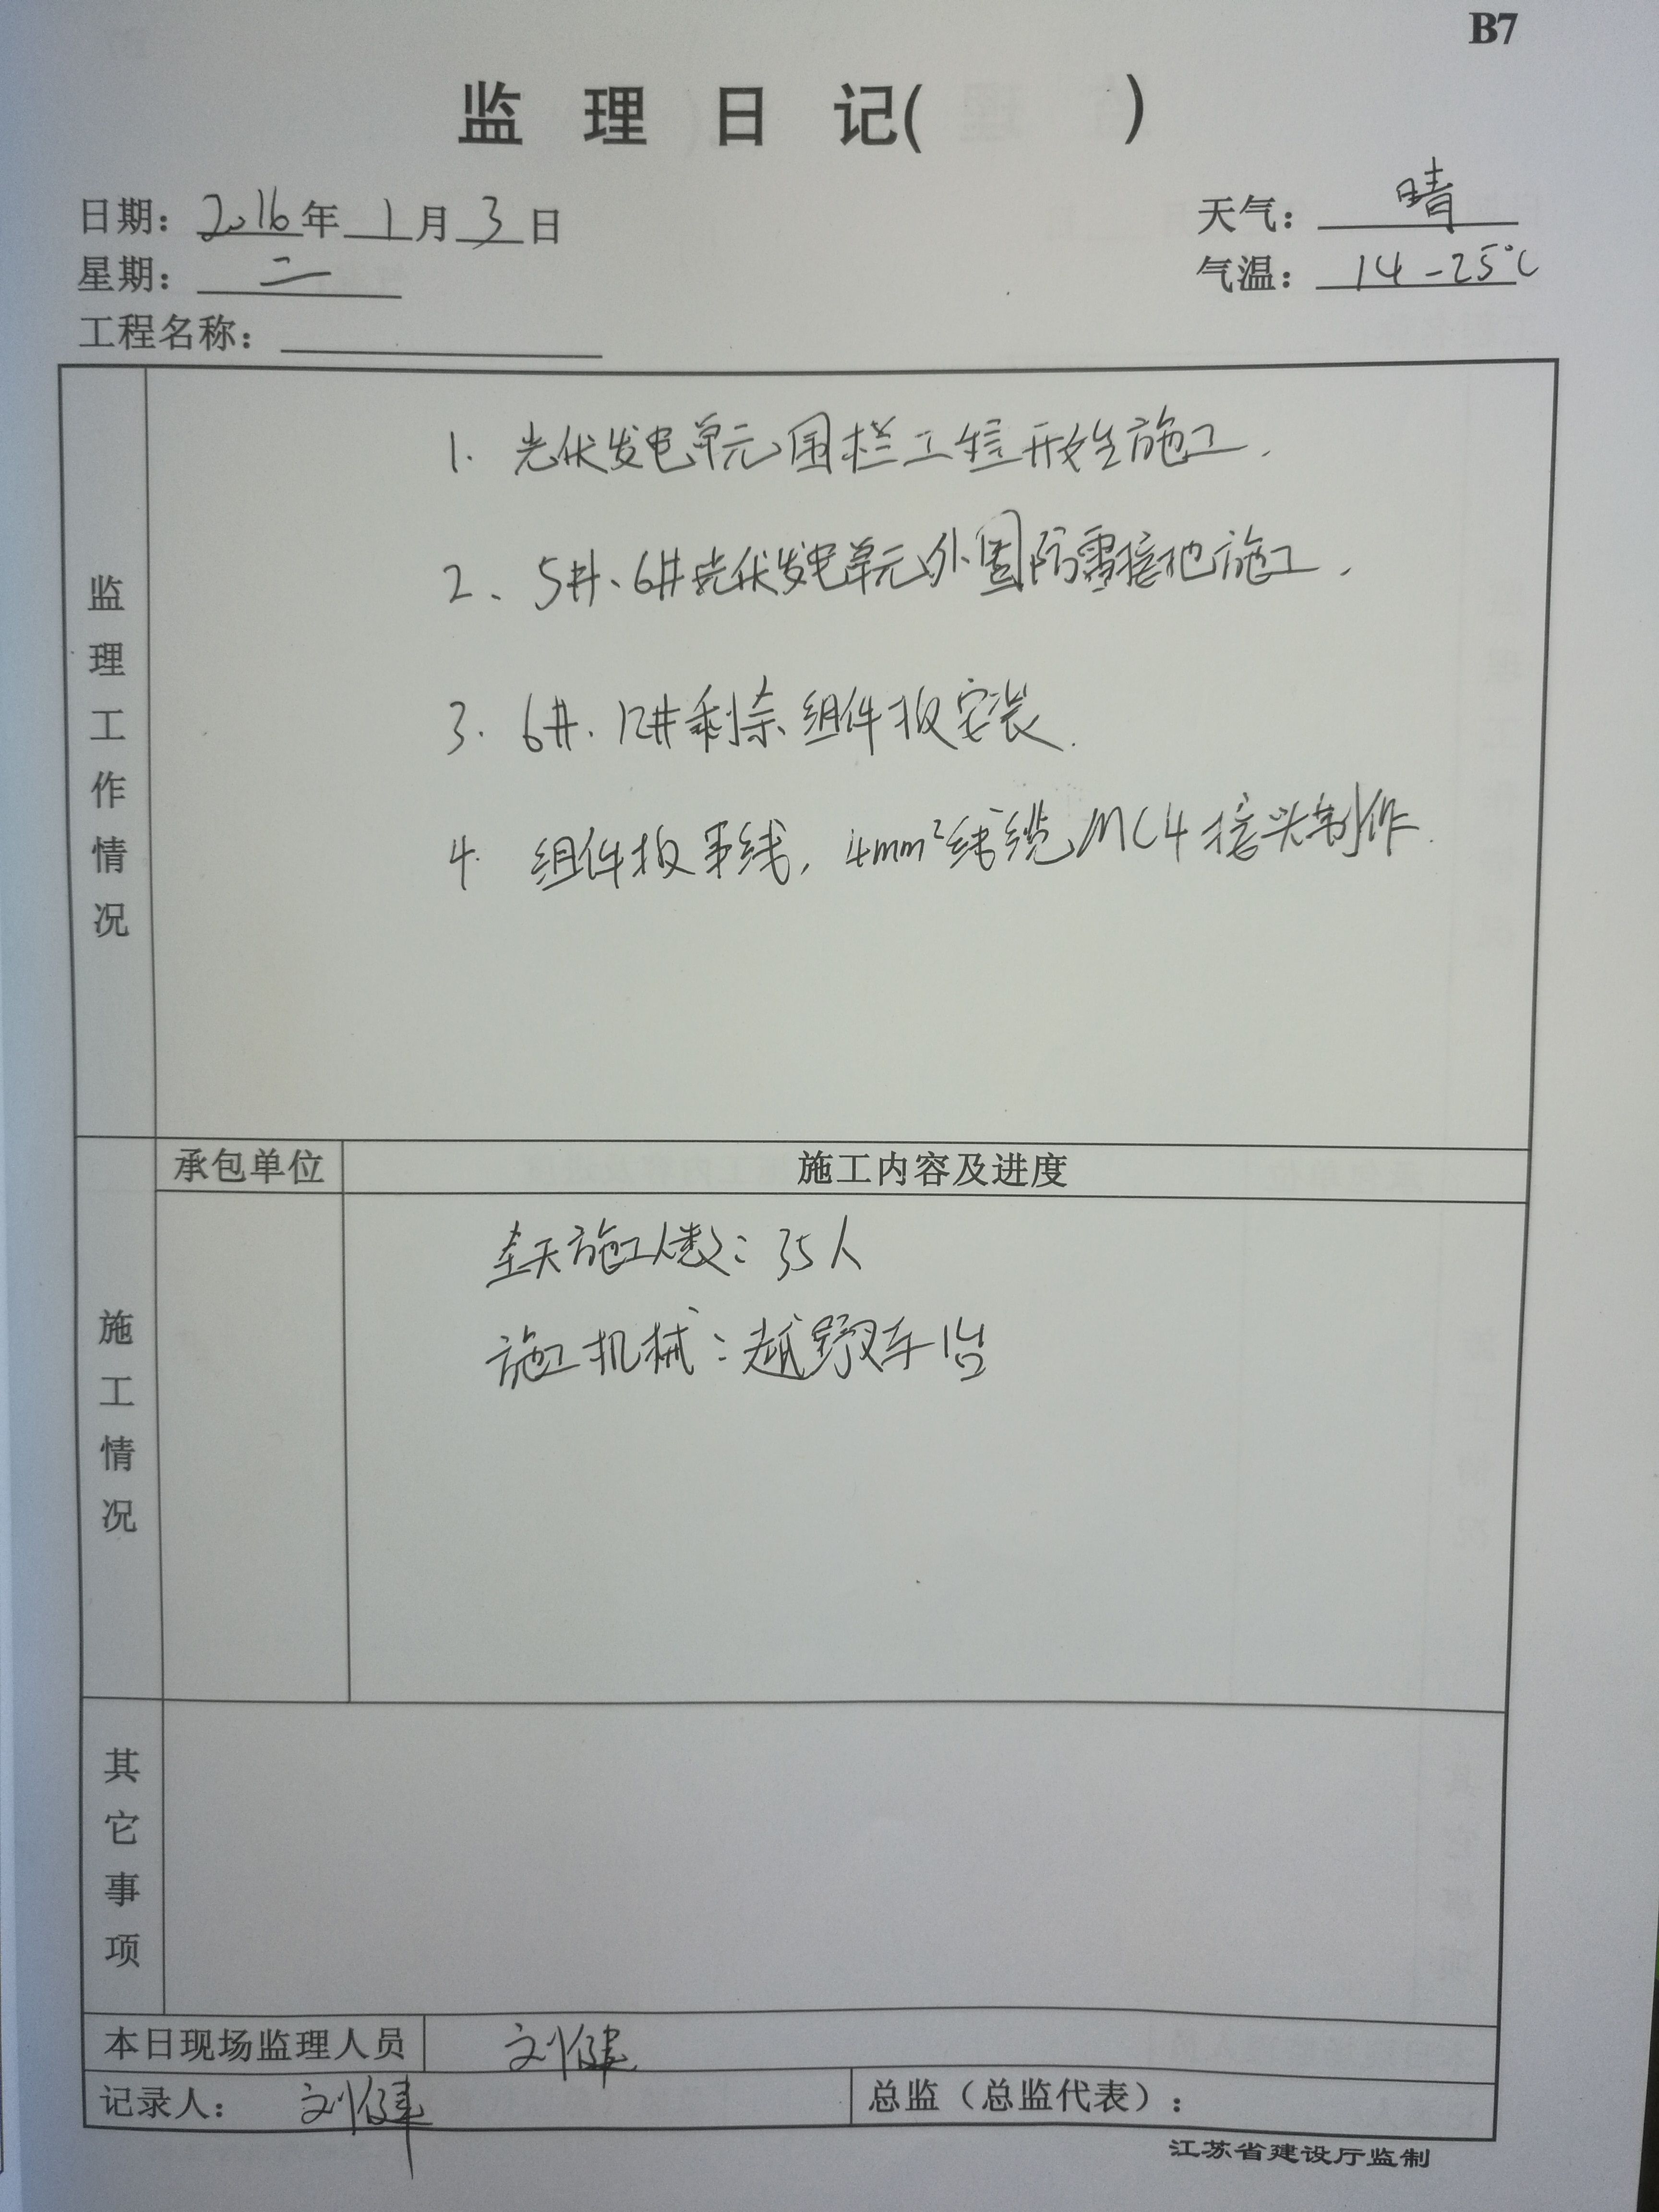 B7
监理日记( )
日期：2016年1月3日
天气：晴
星期：二
气温：14-25℃
工程名称：
监理工作情况
1. 光伏发电单元围栏工程开始施工.
2、5#、6#光伏发电单元外围防雷接地施工.
3. 6#、12#剩余组件板安装.
4. 组件板串线, 4mm²线缆MC4接头制作.
施工情况
承包单位
施工内容及进度
全天施工人数：35人
施工机械：越野叉车1台
其它事项
本日现场监理人员 刘健
记录人：刘健
总监（总监代表）：
江苏省建设厅监制